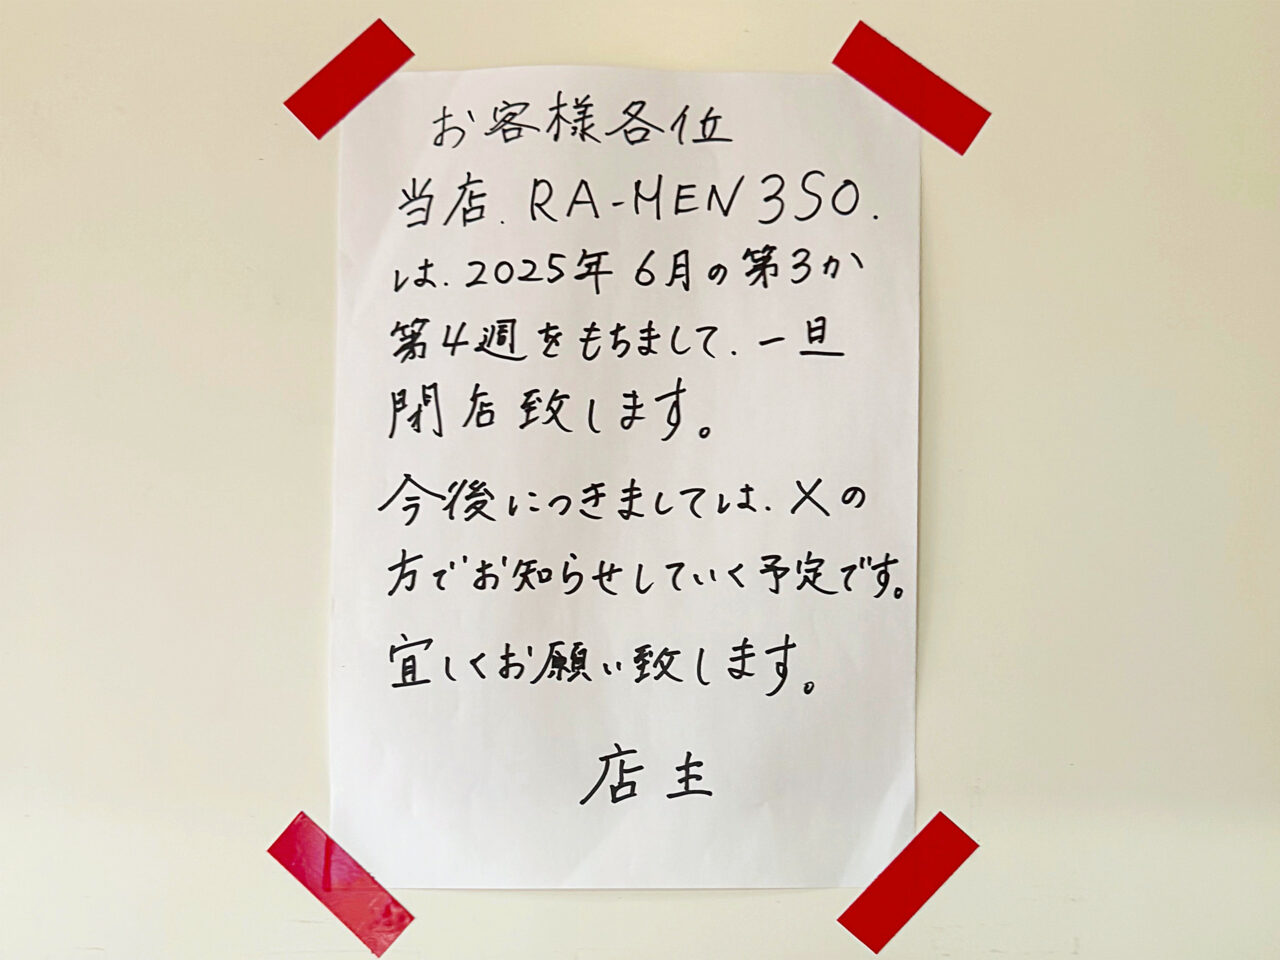 お客様各位
当店、RA-MEN 3SO.
は、2025年6月の第3か
第4週をもちまして、一旦
閉店致します。
今後につきましては、Xの
方でお知らせしていく予定です。
宜しくお願い致します。
店主